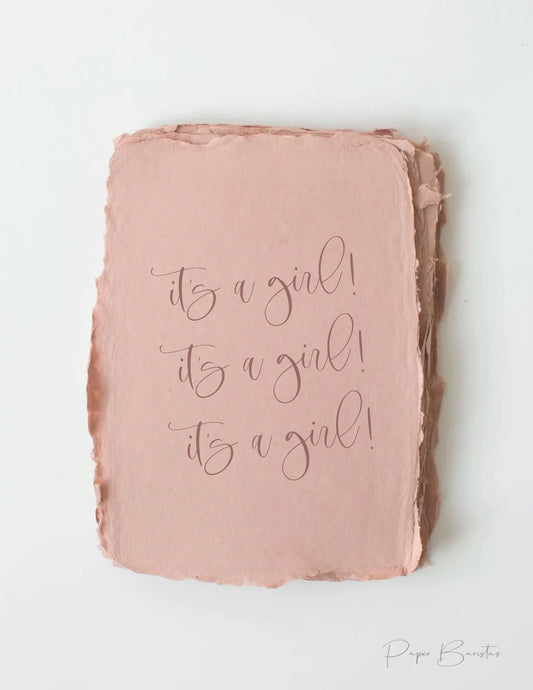 it's a girl!
it's a girl!
it's a girl!
Paper Baristas